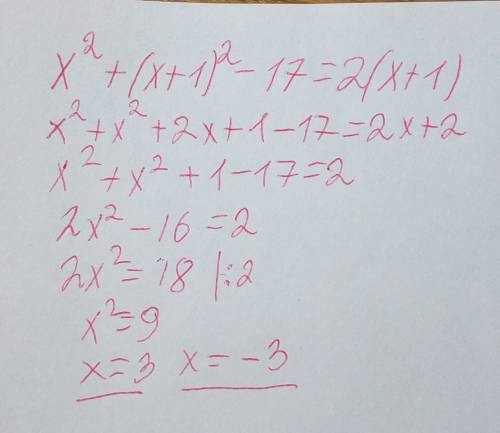 x² + (x+1)² - 17 = 2(x+1)
x² + x² + 2x + 1 - 17 = 2x + 2
x² + x² + 1 - 17 = 2
2x² - 16 = 2
2x² = 18 |:2
x² = 9
x = 3 x = -3